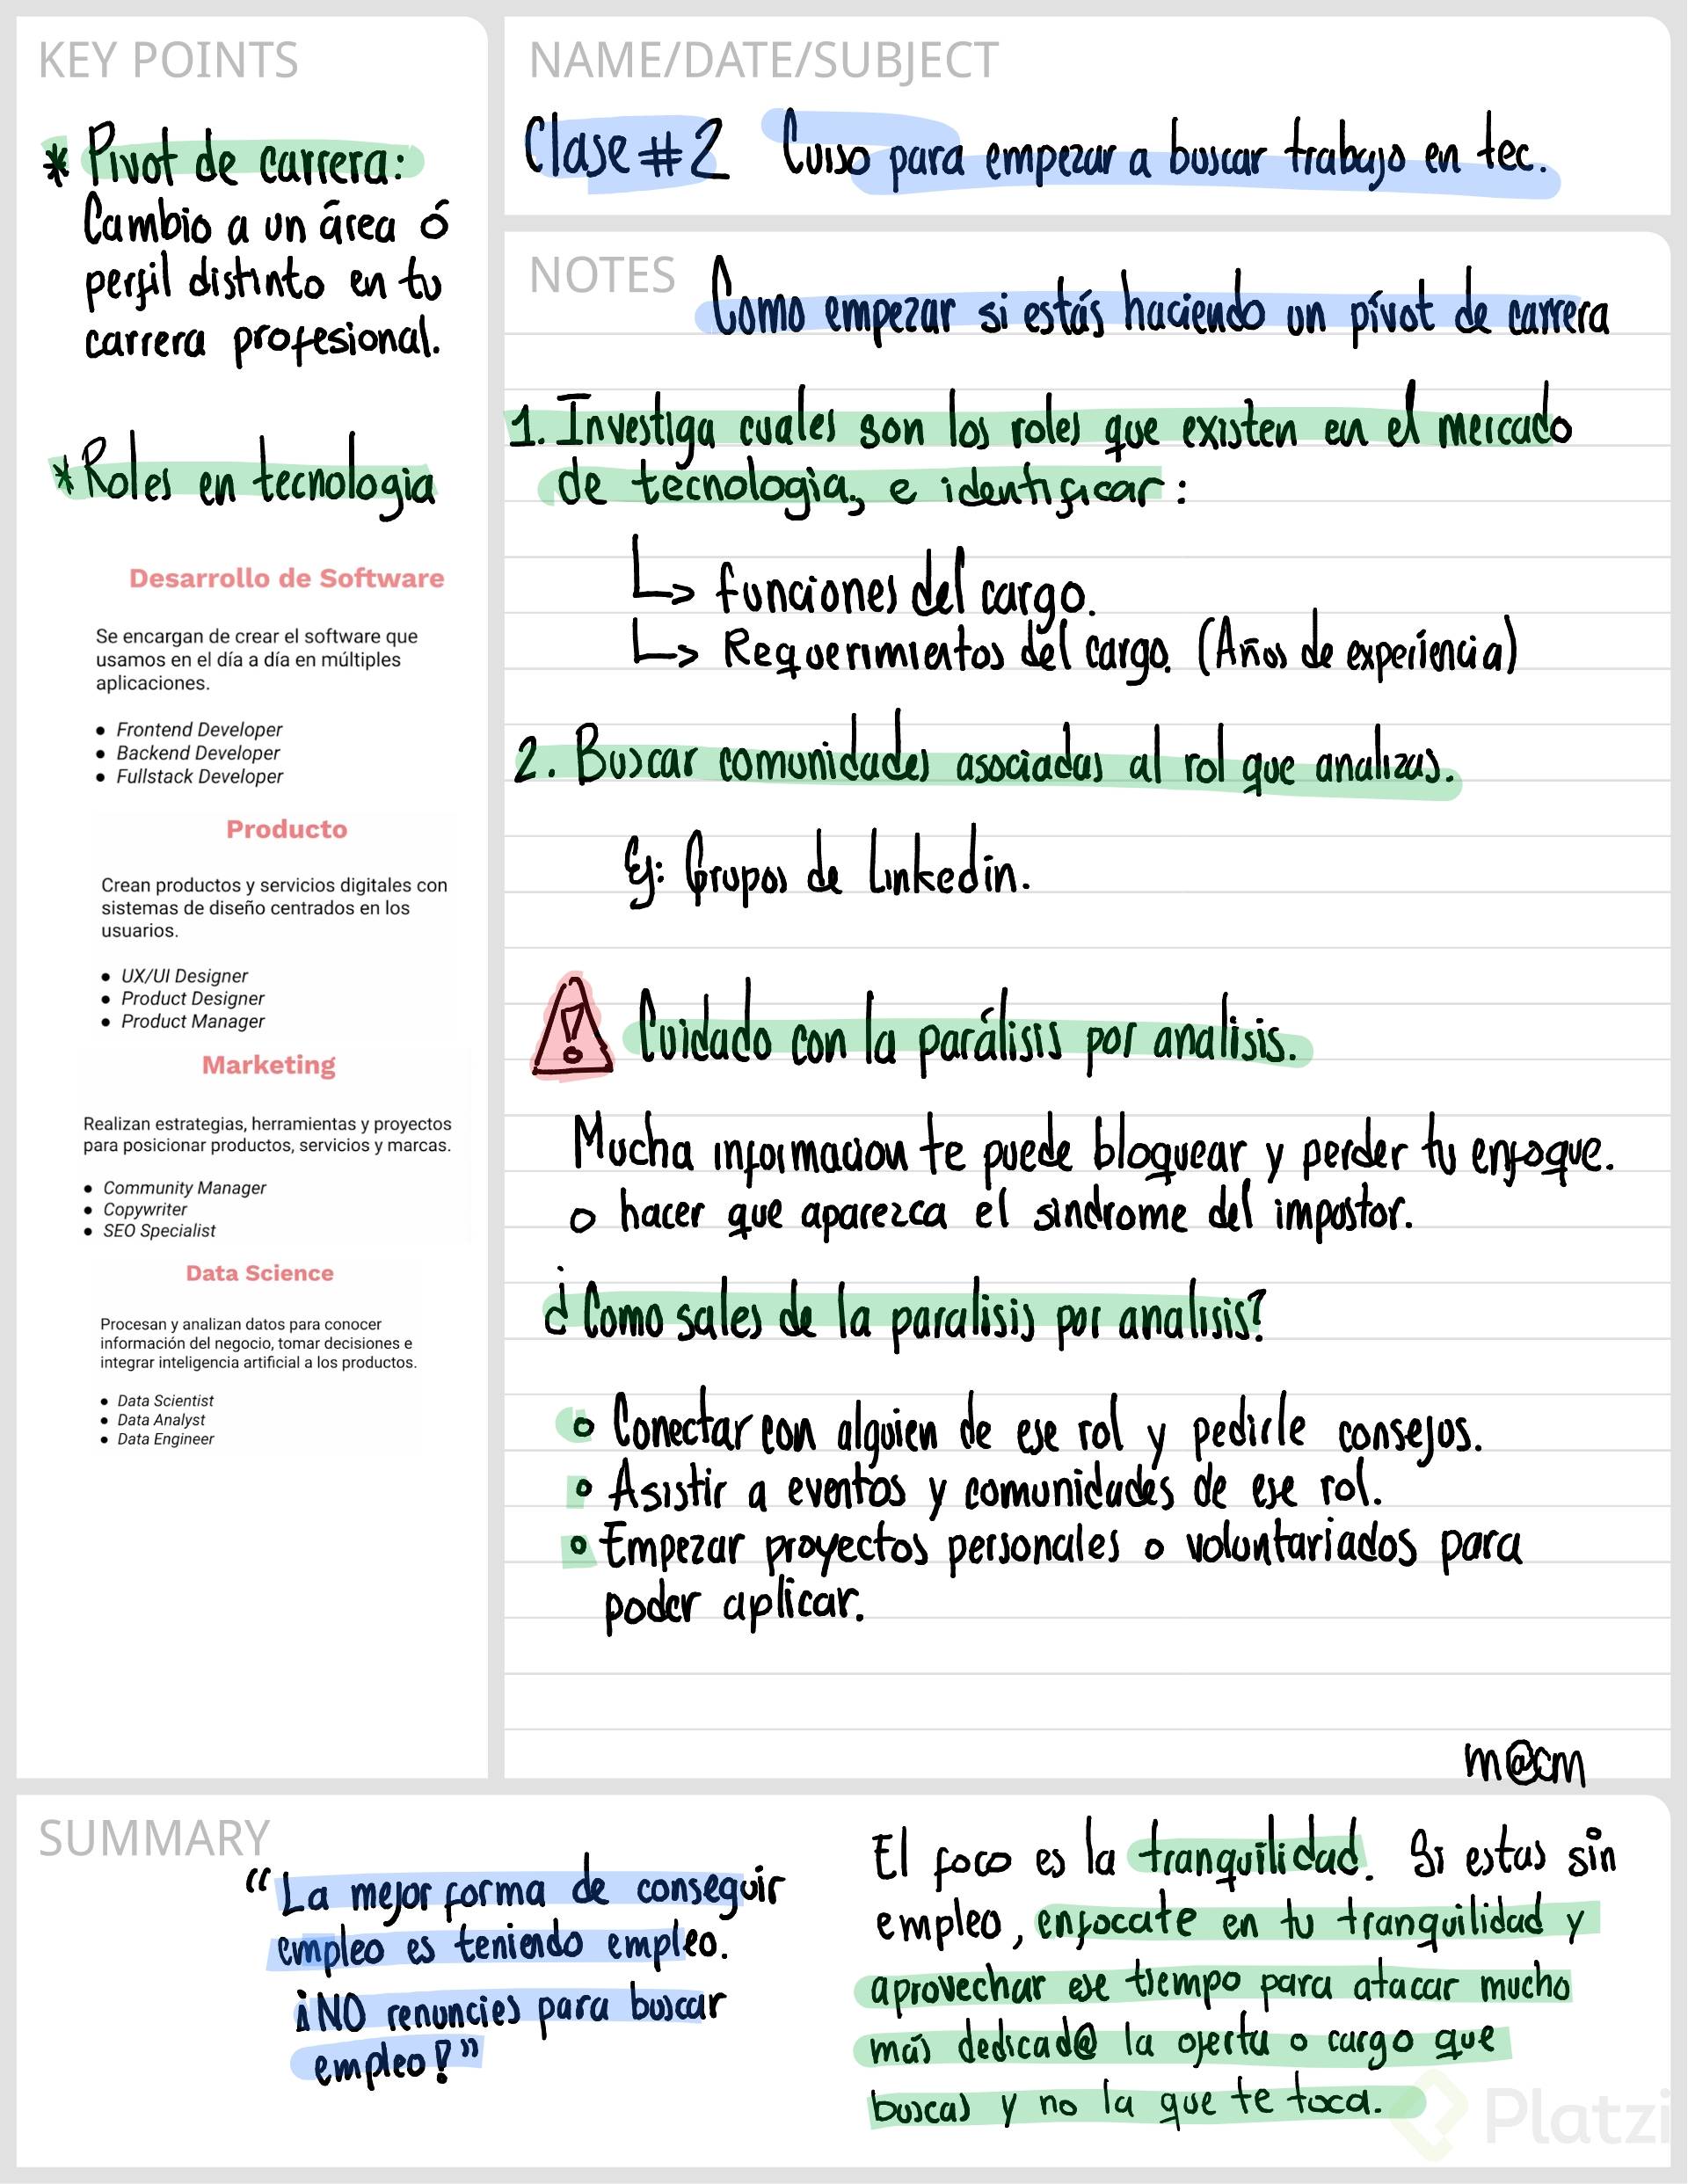 KEY POINTS
* Pivot de carrera:
Cambio a un área ó
perfil distinto en tu
carrera profesional.
*Roles en tecnologia
Desarrollo de Software
Se encargan de crear el software que
usamos en el día a día en múltiples
aplicaciones.
● Frontend Developer
● Backend Developer
● Fullstack Developer
Producto
Crean productos y servicios digitales con
sistemas de diseño centrados en los
usuarios.
● UX/UI Designer
● Product Designer
● Product Manager
Marketing
Realizan estrategias, herramientas y proyectos
para posicionar productos, servicios y marcas.
● Community Manager
● Copywriter
● SEO Specialist
Data Science
Procesan y analizan datos para conocer
información del negocio, tomar decisiones e
integrar inteligencia artificial a los productos.
● Data Scientist
● Data Analyst
● Data Engineer
NAME/DATE/SUBJECT
Clase #2 Curso para empezar a buscar trabajo en tec.
NOTES
Como empezar si estás haciendo un pívot de carrera
1. Investiga cuales son los roles que existen en el mercado
de tecnologia, e identificar:
↳ funciones del cargo.
↳ Requerimientos del cargo. (Años de experiencia)
2. Buscar comunidades asociadas al rol que analizas.
Ej: Grupos de Linkedin.
! Cuidado con la parálisis por analisis.
Mucha informacion te puede bloquear y perder tu enfoque.
o hacer que aparezca el sindrome del impostor.
¿Como sales de la paralisis por analisis?
o Conectar con alguien de ese rol y pedirle consejos.
o Asistir a eventos y comunidades de ese rol.
o Empezar proyectos personales o voluntariados para
poder aplicar.
m@cm
SUMMARY
"La mejor forma de conseguir
empleo es teniendo empleo.
¡NO renuncies para buscar
empleo!"
El foco es la tranquilidad. Si estas sin
empleo, enfocate en tu tranquilidad y
aprovechar ese tiempo para atacar mucho
más dedicad@ la oferta o cargo que
buscas y no la que te toca.
Platzi